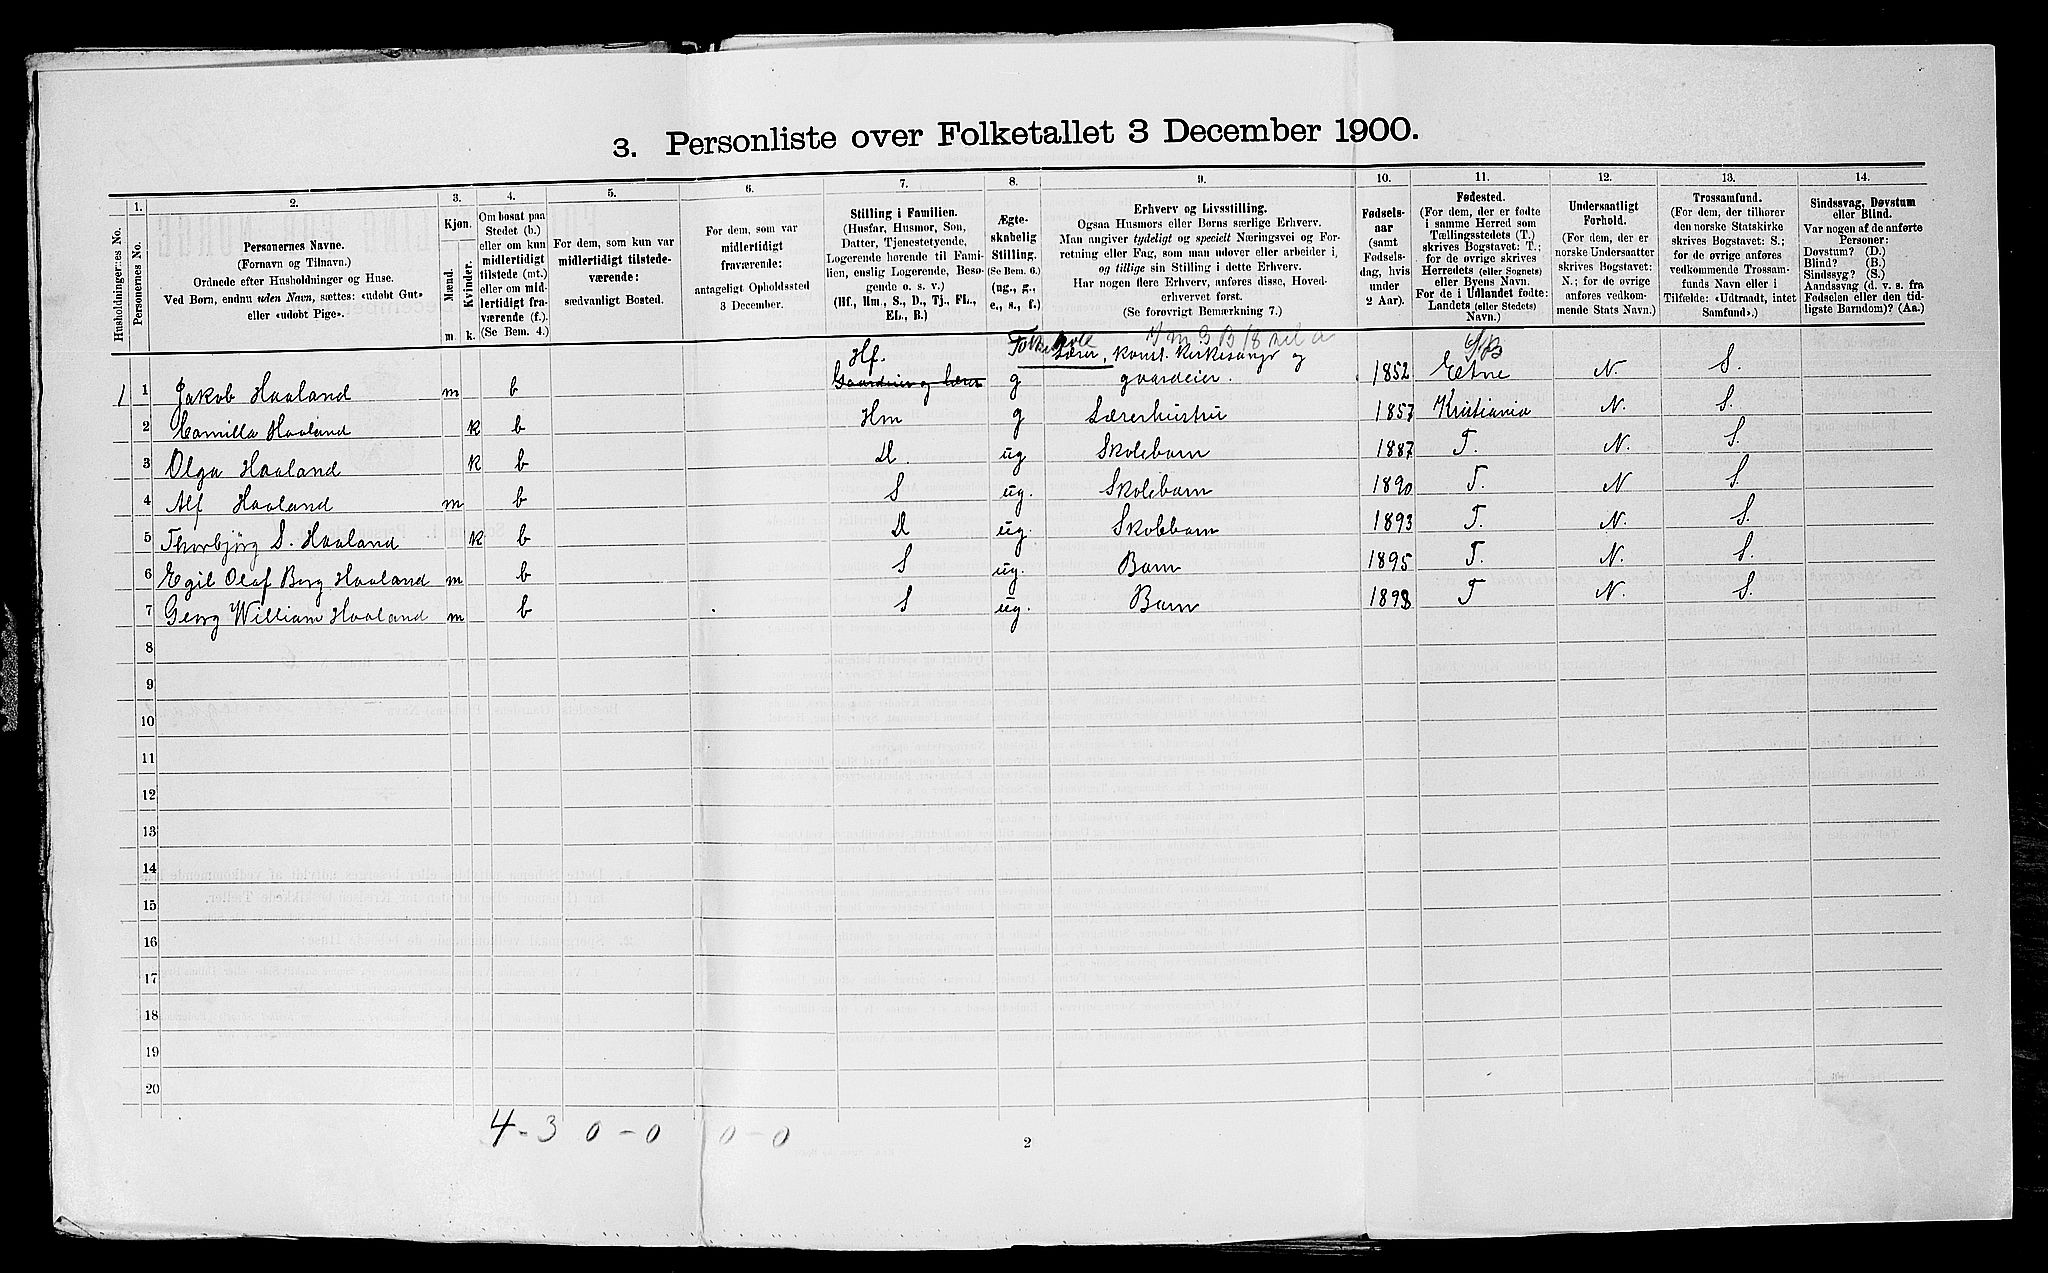 3. Personliste over Folketallet 3 December 1900.
1. 2. 3. 4. 5. 6. 7. 8. 9. 10. 11. 12. 13. 14.
Husholdningernes No.
Personernes No.
Personernes Navne.
(Fornavn og Tilnavn.)
Ordnede efter Husholdninger og Huse.
Ved Børn, endnu uden Navn, sættes: «udøbt Gut»
eller «udøbt Pige».
Kjøn.
Mænd.
Kvinder.
m. k.
Om bosat paa
Stedet (b.)
eller om kun
midlertidigt
tilstede (mt.)
eller om mid-
lertidigt fra-
værende (f.).
(Se Bem. 4.)
For dem, som kun var
midlertidigt tilstede-
værende:
sædvanligt Bosted.
For dem, som var
midlertidigt
fraværende:
antageligt Opholdssted
3 December.
Stilling i Familien.
(Husfar, Husmor, Søn,
Datter, Tjenestetyende,
Logerende hørende til Fami-
lien, enslig Logerende, Besø-
gende o. s. v.)
(Hf., Hm., S., D., Tj., FL.,
EL., B.)
Ægte-
skabelig
Stilling.
(Se Bem. 6.)
(ug., g.,
e., s., f.)
Erhverv og Livsstilling.
Ogsaa Husmors eller Børns særlige Erhverv.
Man angiver tydeligt og specielt Næringsvei og For-
retning eller Fag, som man udøver eller arbeider i,
og tillige sin Stilling i dette Erhverv.
Har nogen flere Erhverv, anføres disse, Hoved-
erhvervet først.
(Se forøvrigt Bemærkning 7.)
Fødsels-
aar
(samt
Fødsels-
dag, hvis
under
2 Aar).
Fødested.
(For dem, der er fødte
i samme Herred som
Tællingsstedets (T.)
skrives Bogstavet: T.;
for de øvrige skrives
Herredets (eller Sognets)
eller Byens Navn.
For de i Udlandet fødte:
Landets (eller Stedets)
Navn.)
Undersaatligt
Forhold.
(For dem, der er
norske Undersaatter
skrives Bogstavet:
N.; for de øvrige
anføres vedkom-
mende Stats Navn.)
Trossamfund.
(For dem, der tilhører
den norske Statskirke
skrives Bogstavet: S.;
for de øvrige anføres
vedkommende Trossam-
funds Navn eller i
Tilfælde: «Udtraadt, intet
Samfund».)
Sindssvag, Døvstum
eller Blind.
Var nogen af de anførte
Personer:
Døvstum? (D.)
Blind? (B.)
Sindssyg? (S.)
Aandssvag (d. v. s. fra
Fødselen eller den tid-
ligste Barndom)? (Aa.)
Hf. Lærer, konst. kirkesanger og
1 1 Jakob Haaland m b Gaardeier og Lærer g gaardeier. 1852 Etne N. S.
2 Camilla Haaland k b Hm g Lærerhustru 1857 Kristiania N. S.
3 Olga Haaland k b D. ug Skolebarn 1887 T. N. S.
4 Alf Haaland m b S ug. Skolebarn 1890 T. N S.
5 Thorbjørg S. Haaland k b D ug. Skolebarn 1893 T. N. S.
6 Egil Olaf Berg Haaland m b S ug. Barn 1895 T. N. S.
7 Georg William Haaland m b S ug. Barn 1898 T N. S.
8
9
10
11
12
13
14
15
16
17
18
19
20
4 - 3 0 - 0 0 - 0
2